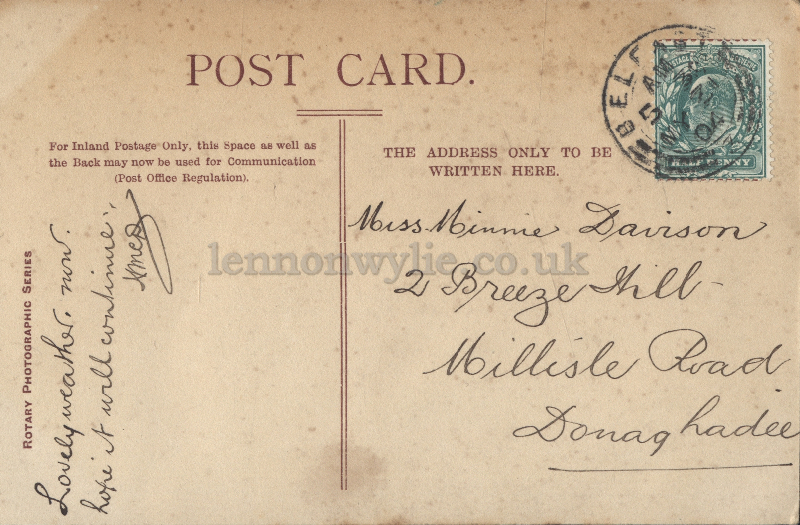 POST CARD.
For Inland Postage Only, this Space as well as
the Back may now be used for Communication
(Post Office Regulation).
THE ADDRESS ONLY TO BE
WRITTEN HERE.
BELFAST
MY
04
HALFPENNY
Miss Minnie Davison
2 Breeze Hill
Millisle Road
Donaghadee
Lovely weather, now.
hope it will continue.
ROTARY PHOTOGRAPHIC SERIES
lennonwylie.co.uk